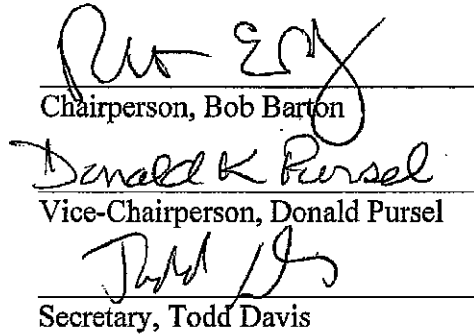 Chairperson, Bob Barton
Donald K Pursel
Vice-Chairperson, Donald Pursel
Todd
Secretary, Todd Davis